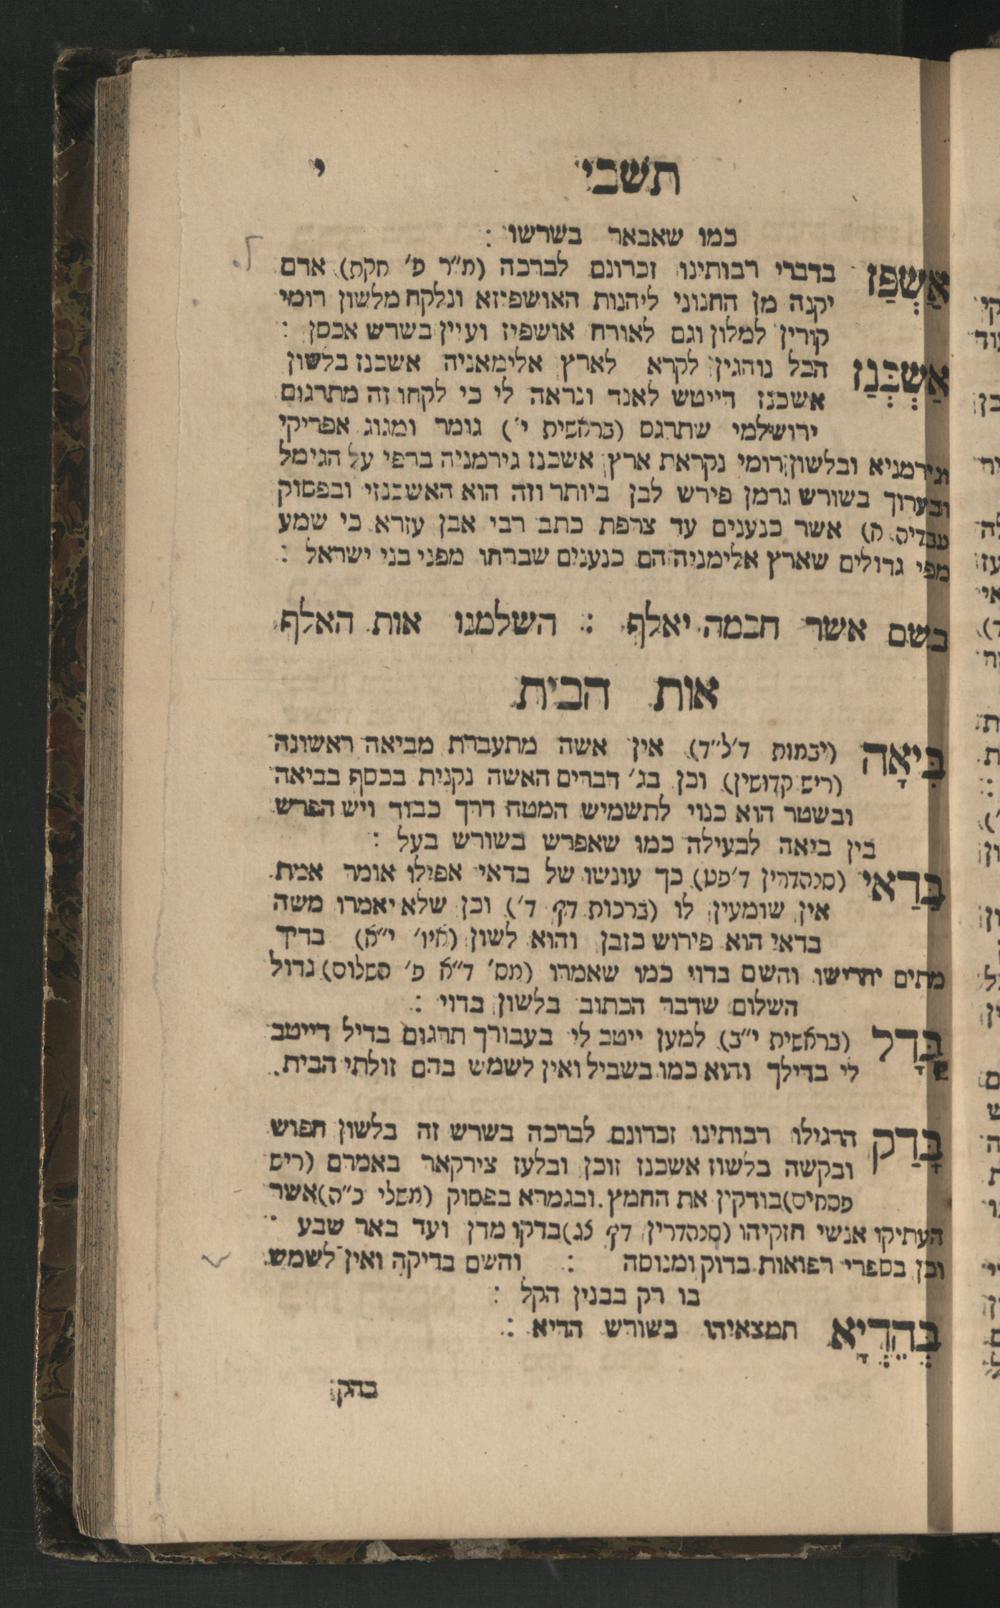 תשבי י
כמו שאבאר בשרשו :
אַשְׁפַּז בדברי רבותינו זכרונם לברכה (ת״ר פ׳ חקת) אדם
יקנה מן החנוני ליהנות האושפיזא ונלקח מלשון רומי
קורין למלון וגם לאורח אושפיז ועיין בשרש אכסן :
אַשְׁכְּנַז הכל נוהגין לקרא לארץ אלימאניה אשכנז בלשון
אשכנז דייטש לאנד ונראה לי כי לקחו זה מתרגום
ירושלמי שתרגם (בראשית י׳) גומר ומגוג אפריקי
וגירמניא ובלשון רומי נקראת ארץ אשכנז גירמניה ברפי על הגימל
ובערוך בשורש גרמן פירש לבן ביותר וזה הוא האשכנזי ובפסוק
עבדיה ה) אשר כנענים עד צרפת כתב רבי אבן עזרא כי שמע
מפי גדולים שארץ אלימניה הם כנענים שברחו מפני בני ישראל :
בשם אשר חכמה יאלף : השלמנו אות האלף
אות הבית
בִּיאָה (יבמות ד׳ל״ד) אין אשה מתעברת מביאה ראשונה
(ריש קדושין) וכן בג׳ דברים האשה נקנית בכסף בביאה
ובשטר הוא כנוי לתשמיש המטה דרך כבוד ויש הפרש
בין ביאה לבעילה כמו שאפרש בשורש בעל :
בַּדַאי (סנהדרין ד׳פט) כך עונשו של בדאי אפילו אומר אמת
אין שומעין לו (ברכות דף ד׳) וכן שלא יאמרו משה
בדאי הוא פירוש כזבן והוא לשון (איו׳ י״א) בדיך
מתים יחרישו והשם בדוי כמו שאמרו (מס׳ ד״א פ׳ השלום) גדול
השלום שדבר הכתוב בלשון בדוי :
בָּדָל (בראשית י״ב) למען ייטב לי בעבורך תרגום בדיל דייטב
לי בדילך והוא כמו בשביל ואין לשמש בהם זולתי הבית.
בָּדַק הרגילו רבותינו זכרונם לברכה בשרש זה בלשון חפוש
ובקשה בלשון אשכנז זוכן ובלעז צירקאר באמרם (ריש
פסחים) בודקין את החמץ. ובגמרא בפסוק (משלי כ״ה) אשר
העתיקו אנשי חזקיהו (סנהדרין דף צג) בדקו מדן ועד באר שבע
וכן בספרי רפואות בדוק ומנוסה : והשם בדיקה ואין לשמש
בו רק בבנין הקל :
בְּהֵדְיָא תמצאיהו בשורש הדיא :
בהק